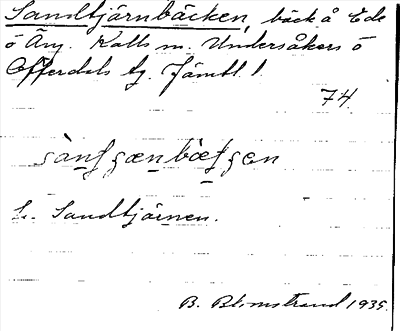 Sandtjärnbäcken, bäck å Ede
ö Äng. Kalls sn. Undersåkers o
Offerdals tg. Jämtl. l.
74.
L. Sandtjärnen.
B. Blomstrand 1935.